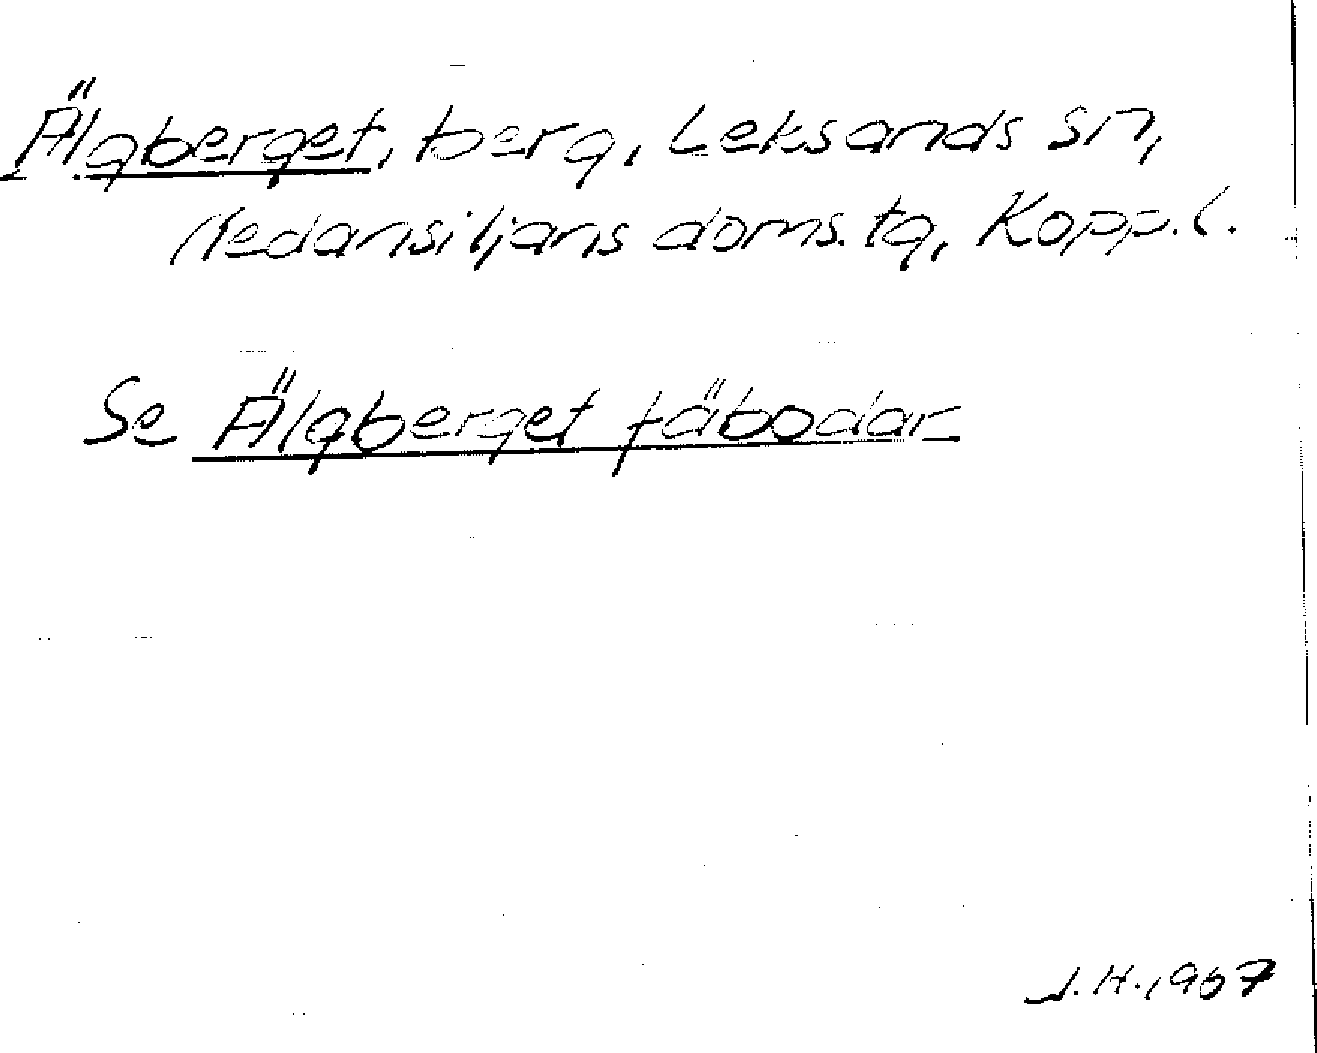 Älgberget, berg, Leksands sn,
Nedansiljans doms.tg, Kopp.l.
Se Älgberget fäbodar
J.H.,1967